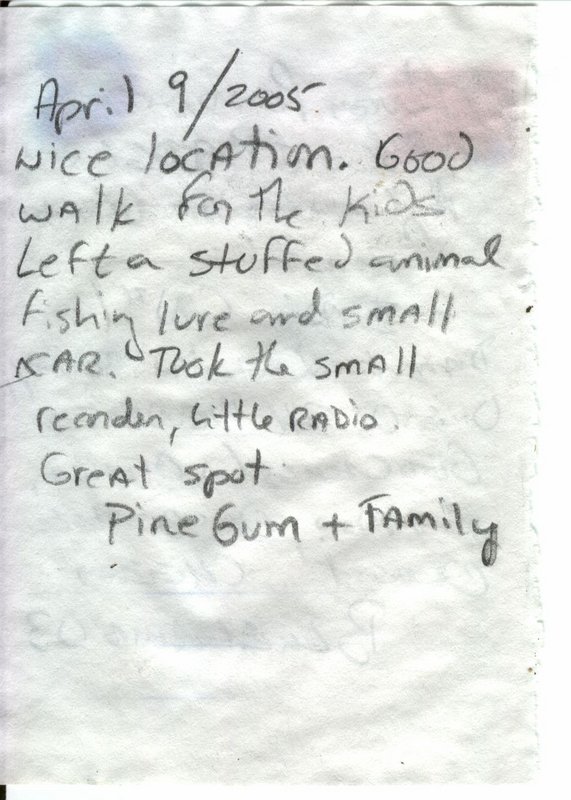 April 9/2005
Nice location. Good
walk for the kids
Left a stuffed animal
fishing lure and small
CAR. Took the small
recorder, little RADIO.
Great spot.
Pine Gum + Family